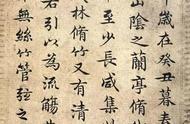 年歲在癸丑暮春
山陰之蘭亭脩禊
至少長咸集
林脩竹又有清
右引以為流觴
無絲竹管弦之